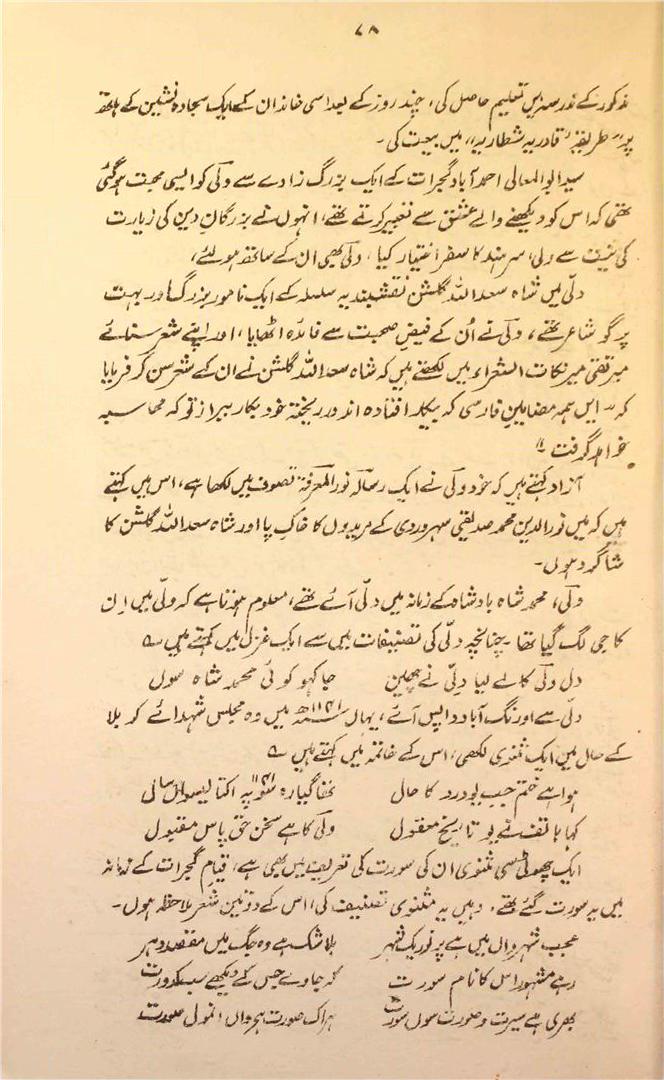 ۷۸
مذکور کے مدرسہ میں تعلیم حاصل کی، چند روز کے بعد اسی خاندان کے ایک سجادہ نشین کے ہاتھ
پر "طریقۂ قادریہ شطاریہ" میں بیعت کی۔
سید ابوالمعالی احمد آباد گجرات کے ایک بزرگ زادے سے ولی کو ایسی محبت ہو گئی
تھی کہ اس کو دیکھنے والے عشق سے تعبیر کرتے تھے، انہوں نے بزرگان دین کی زیارت
کی نیت سے دلی، سرہند کا سفر اختیار کیا، ولی بھی ان کے ساتھ ہو لئے،
دلّی میں شاہ سعد اللہ گلشن نقشبندیہ سلسلہ کے ایک نامور بزرگ اور بہت
پرگو شاعر تھے، ولی نے اُن کے فیض صحبت سے فائدہ اٹھایا، اور اپنے شعر سنائے
میر تقی میر نکات الشعراء میں لکھتے ہیں کہ شاہ سعد اللہ گلشن نے ان کے شعر سن کر فرمایا
کہ "ایں ہمہ مضامین فارسی کہ بیکار افتادہ اند در ریختۂ خود بکار ببر از تو کہ محاسبہ
خواہد گرفت"
آزاد کہتے ہیں کہ خود ولی نے ایک رسالہ نور المعرفۃ تصوف میں لکھا ہے، اس میں کہتے
ہیں کہ میں نور الدین محمد صدیقی سہروردی کے مریدوں کا خاکِ پا اور شاہ سعد اللہ گلشن کا
شاگرد ہوں۔
ولی، محمد شاہ بادشاہ کے زمانہ میں دلّی آئے تھے، معلوم ہوتا ہے کہ دلّی میں اِن
کا جی لگ گیا تھا۔ چنانچہ دلّی کی تصنیفات میں سے ایک غزل میں کہتے ہیں ؎
دل ولی کا لے لیا دلّی نے چھین جا کہو کوئی محمد شاہ سوں
دلّی سے اورنگ آباد واپس آئے، یہاں ۱۱۴۱ھ میں وہ مجلس شہدائے کربلا
کے حال میں ایک مثنوی لکھی، اس کے خاتمہ میں کہتے ہیں ؎
ہوا ہے ختم جب یو درد کا حال تھا گیارہ سو پہ اکتالیسواں سال
کہا ہاتف نے یو تاریخ معقول ولی کا ہے سخن حق پاس مقبول
ایک چھوٹی سی مثنوی ان کی سورت کی تعریف میں بھی ہے، قیام گجرات کے زمانہ
میں یہ سورت گئے تھے، وہیں یہ مثنوی تصنیف کی، اس کے دو تین شعر ملاحظہ ہوں۔
عجب شہروں میں ہے پر نور یک شہر بلاشک ہے وہ جگ میں مقصد دہر
رہے مشہور اس کا نام سورت کہ جاوے جس کے دیکھے سب کدورت
بھری ہے سیرت و صورت سوں سورت ہر اک صورت ہے واں انمول صورت